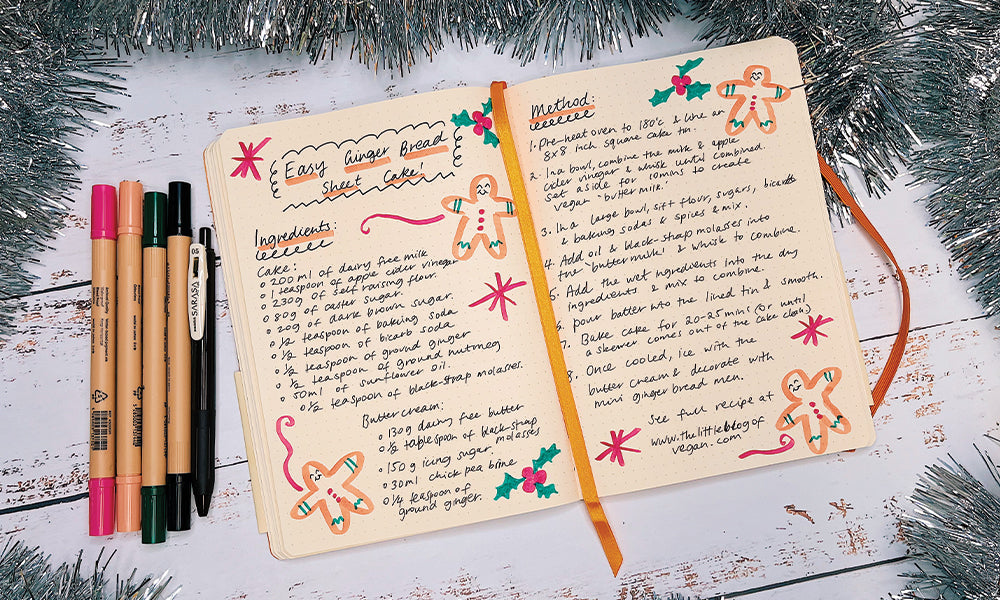 Easy Ginger Bread
Sheet Cake!
Ingredients:
Cake:
200ml of dairy free milk
1 teaspoon of apple cider vinegar
230g of self raising flour.
80g of caster sugar.
20g of dark brown sugar.
1/2 teaspoon of baking soda
1/2 teaspoon of bicarb soda
1/2 teaspoon of ground ginger
1/2 teaspoon of ground nutmeg
50ml of sunflower oil.
1/2 teaspoon of black-strap molasses.
Buttercream:
130g dairy free butter
1/2 tablespoon of black-strap
molasses
150g icing sugar.
30ml chick pea brine
1/4 teaspoon of
ground ginger.
Method:
1. Pre-heat oven to 180°c & line an
8x8 inch square cake tin.
2. In a bowl, combine the milk & apple
cider vinegar & whisk until combined.
Set aside for 10mins to create
vegan "buttermilk."
3. In a large bowl, sift flour, sugars, bicarb
& baking sodas & spices & mix.
4. Add oil & black-strap molasses into
the "buttermilk" & whisk to combine.
5. Add the wet ingredients into the dry
ingredients & mix to combine.
6. pour batter into the lined tin & smooth.
7. Bake cake for 20-25 mins (or until
a skewer comes out of the cake clean)
8. Once cooled, ice with the
butter cream & decorate with
mini ginger bread men.
See full recipe at
www.thelittleblogof
vegan.com
0.5
SARASA